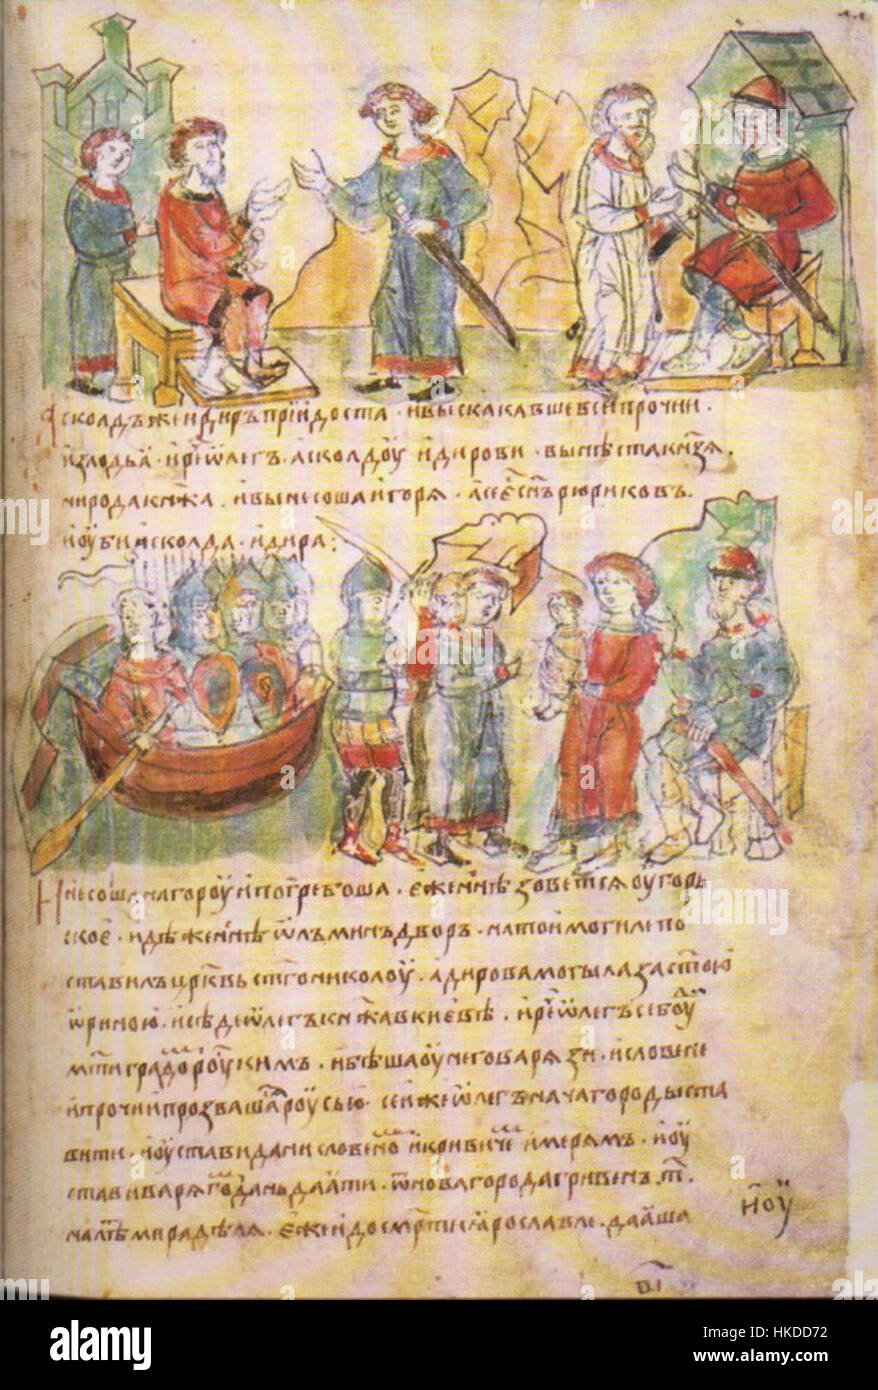 Асколдъ же и Диръ прїидоста · и выскакавше вси прочии ·
изъ лодьꙗ · и реⷱ Ѡлегъ · Асколдоу и Дирови · вы нѣста кнѧзѧ ·
ни рода кнѧжа · и вынесоша Игорѧ · а се есть сн҃ъ Рюриковъ ·
и оубиша Асколда · и Дира :
И несоша на гороу и погребоша · еже нн҃ѣ зоветсѧ Оугорь
ское · идѣже нн҃ѣ Ѡлъминъ дворъ · на той могиле по
ставилъ црк҃вь ст҃го Николоу · а Дирова могыла за ст҃ою
Ѡриною · и сѣде Ѡлегъ кнѧжа в Киевѣ · и реⷱ Ѡлегъ се боуⷣ
мт҃и градоⷨ Роускимъ · и бѣша оу него варѧзи · и словене
и прочии прозвашасѧ Роусью · сей же Ѡлегъ нача городы ста
вити · и оустави дани словеноⷨ и кривичеⷨ и мерѧмъ · и оу
стави варѧгоⷨ дань даꙗти · ѿ Новагорода гривенъ ·т҃·
на лѣⷮ мира дѣлѧ · еже и до смр҃ти Ꙗрославле · даꙗша
alamy
Image ID: HKDD72
www.alamy.com